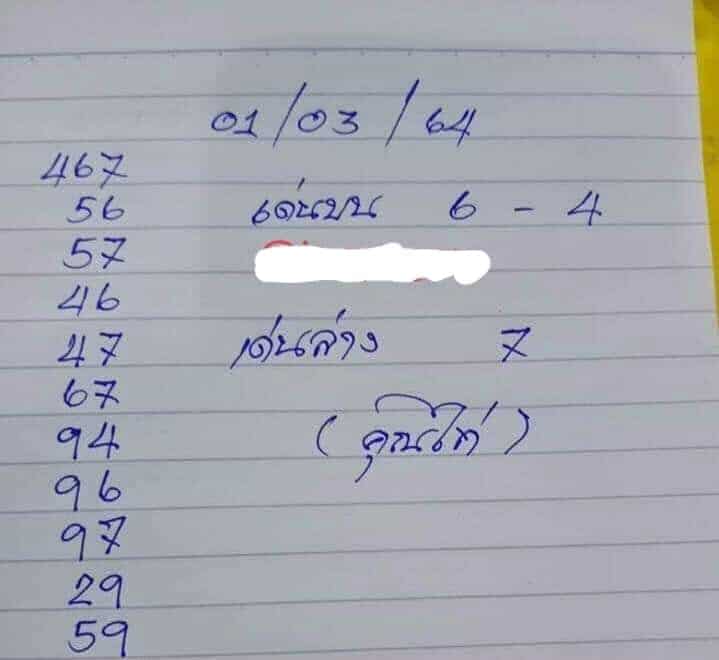 01/03/64
467
56
เด่นบน 6 - 4
57
46
47
เด่นล่าง 7
67
94
(คุณไก่)
96
97
29
59